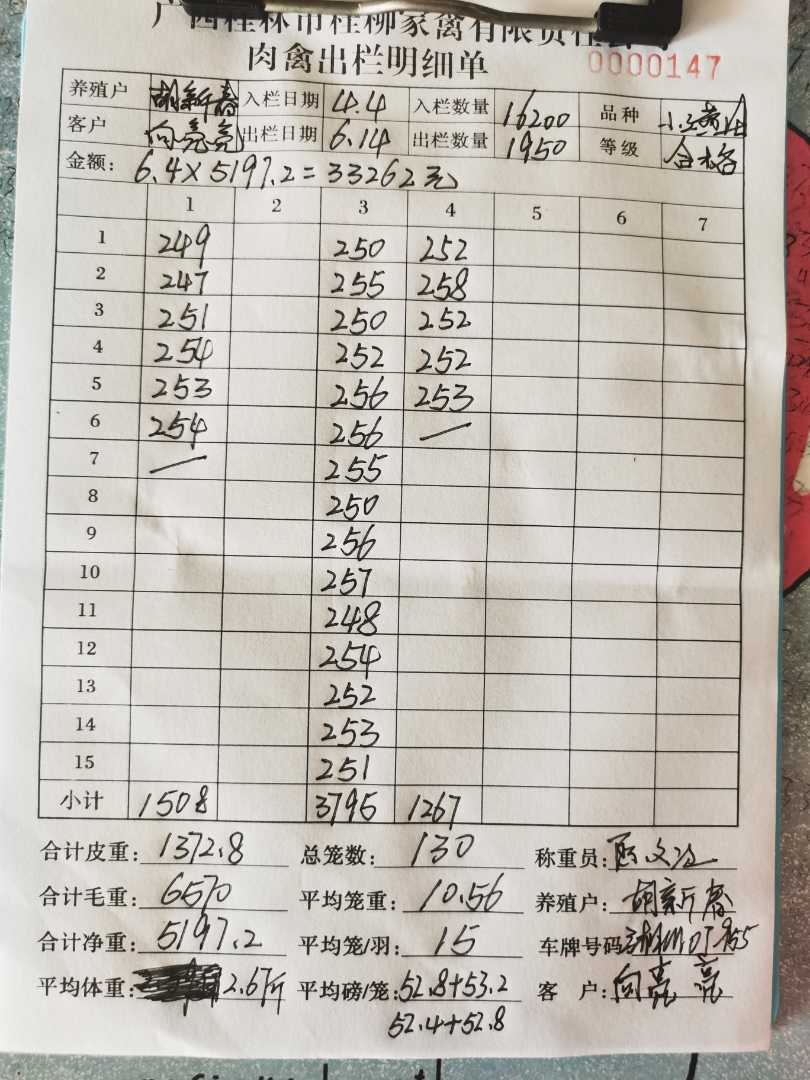 广西桂林市桂柳家禽有限责任公司
肉禽出栏明细单 0000147
养殖户 胡新春 入栏日期 4.4 入栏数量 16200 品种
客户 向亮亮 出栏日期 6.14 出栏数量 1950 等级 合格
金额: 6.4×5197.2=33262元
1 2 3 4 5 6 7
1 249 250 252
2 247 255 258
3 251 250 252
4 254 252 252
5 253 256 253
6 254 256 —
7 — 255
8 250
9 256
10 257
11 248
12 254
13 252
14 253
15 251
小计 1508 3795 1267
合计皮重: 1372.8 总笼数: 130 称重员:
合计毛重: 6570 平均笼重: 10.56 养殖户: 胡新春
合计净重: 5197.2 平均笼/羽: 15 车牌号码:
平均体重: 2.67斤 平均磅/笼: 52.8+53.2 客 户: 向亮亮
52.4+52.8